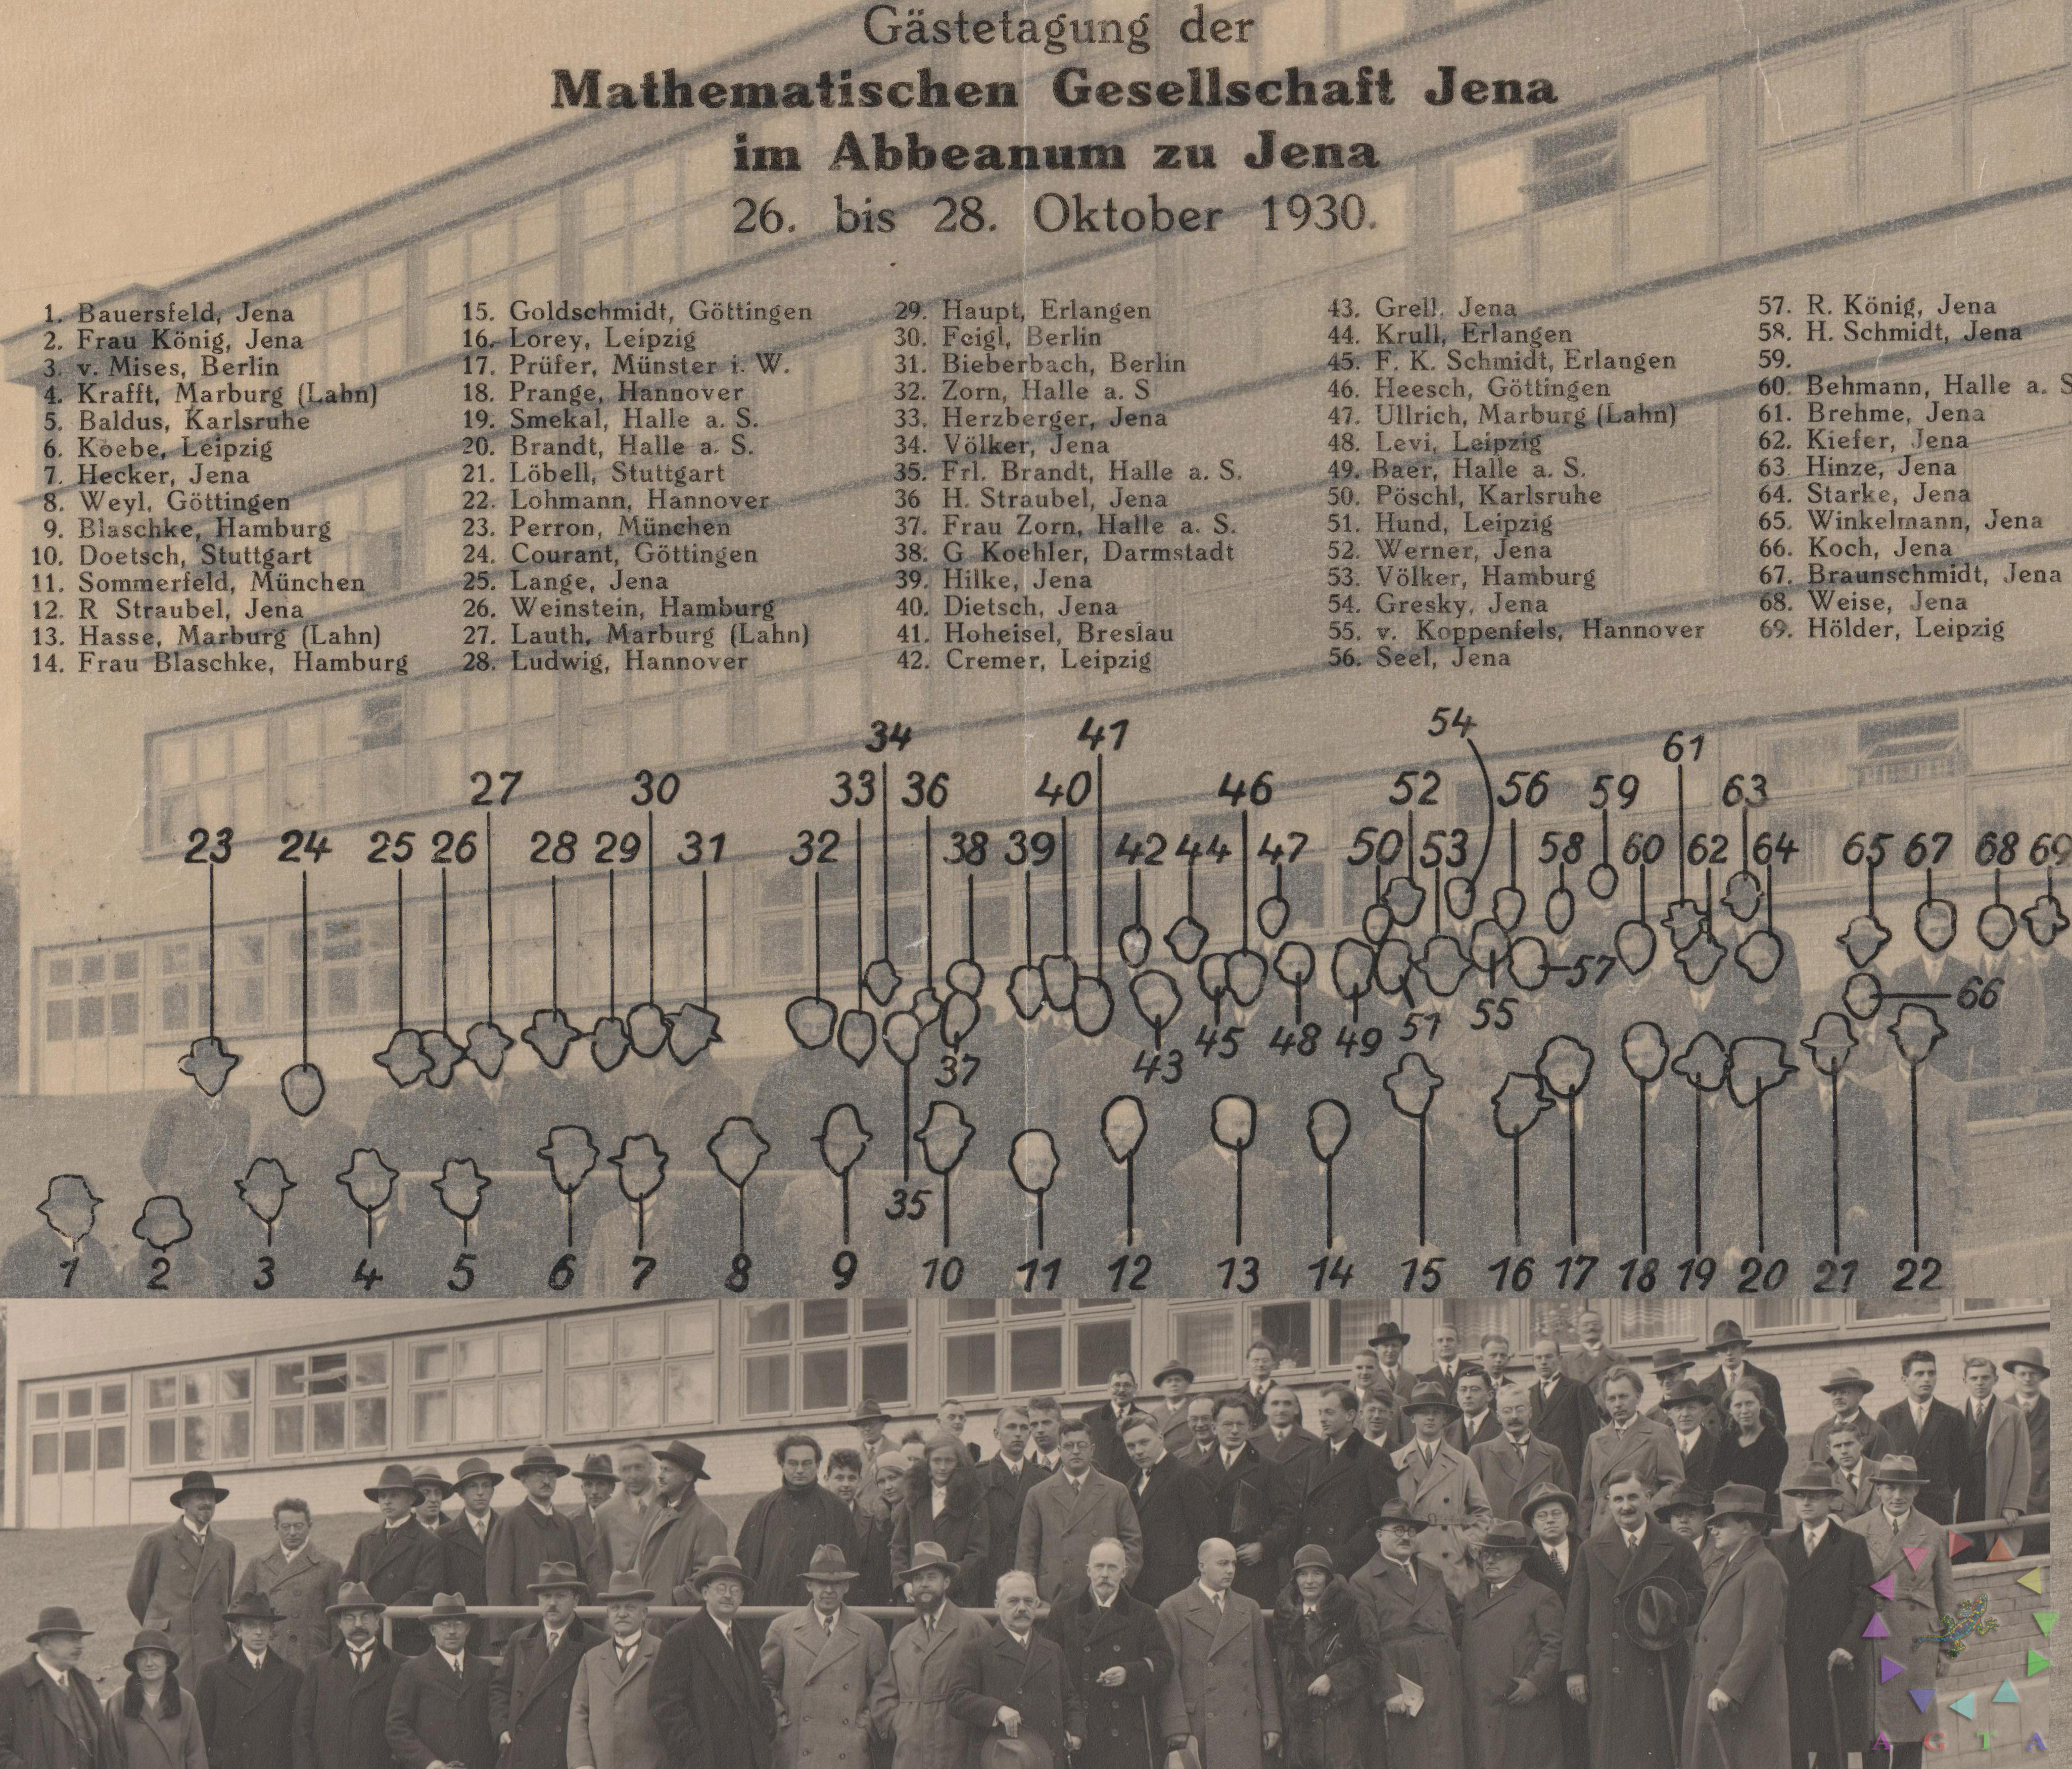 Gästetagung der
Mathematischen Gesellschaft Jena
im Abbeanum zu Jena
26. bis 28. Oktober 1930.
1. Bauersfeld, Jena
2. Frau König, Jena
3. v. Mises, Berlin
4. Krafft, Marburg (Lahn)
5. Baldus, Karlsruhe
6. Koebe, Leipzig
7. Hecker, Jena
8. Weyl, Göttingen
9. Blaschke, Hamburg
10. Doetsch, Stuttgart
11. Sommerfeld, München
12. R Straubel, Jena
13. Hasse, Marburg (Lahn)
14. Frau Blaschke, Hamburg
15. Goldschmidt, Göttingen
16. Lorey, Leipzig
17. Prüfer, Münster i. W.
18. Prange, Hannover
19. Smekal, Halle a. S.
20. Brandt, Halle a. S.
21. Löbell, Stuttgart
22. Lohmann, Hannover
23. Perron, München
24. Courant, Göttingen
25. Lange, Jena
26. Weinstein, Hamburg
27. Lauth, Marburg (Lahn)
28. Ludwig, Hannover
29. Haupt, Erlangen
30. Feigl, Berlin
31. Bieberbach, Berlin
32. Zorn, Halle a. S
33. Herzberger, Jena
34. Völker, Jena
35. Frl. Brandt, Halle a. S.
36 H. Straubel, Jena
37. Frau Zorn, Halle a. S.
38. G Koehler, Darmstadt
39. Hilke, Jena
40. Dietsch, Jena
41. Hoheisel, Breslau
42. Cremer, Leipzig
43. Grell, Jena
44. Krull, Erlangen
45. F. K. Schmidt, Erlangen
46. Heesch, Göttingen
47. Ullrich, Marburg (Lahn)
48. Levi, Leipzig
49. Baer, Halle a. S.
50. Pöschl, Karlsruhe
51. Hund, Leipzig
52. Werner, Jena
53. Völker, Hamburg
54. Gresky, Jena
55. v. Koppenfels, Hannover
56. Seel, Jena
57. R. König, Jena
58. H. Schmidt, Jena
59.
60. Behmann, Halle a. S
61. Brehme, Jena
62. Kiefer, Jena
63. Hinze, Jena
64. Starke, Jena
65. Winkelmann, Jena
66. Koch, Jena
67. Braunschmidt, Jena
68. Weise, Jena
69. Hölder, Leipzig
54
34 41 61
27 30 33 36 40 46 52 56 59 63
23 24 25 26 28 29 31 32 38 39 42 44 47 50 53 58 60 62 64 65 67 68 69
57 66
37 43 45 48 49 51 55
35
1 2 3 4 5 6 7 8 9 10 11 12 13 14 15 16 17 18 19 20 21 22
A G T A